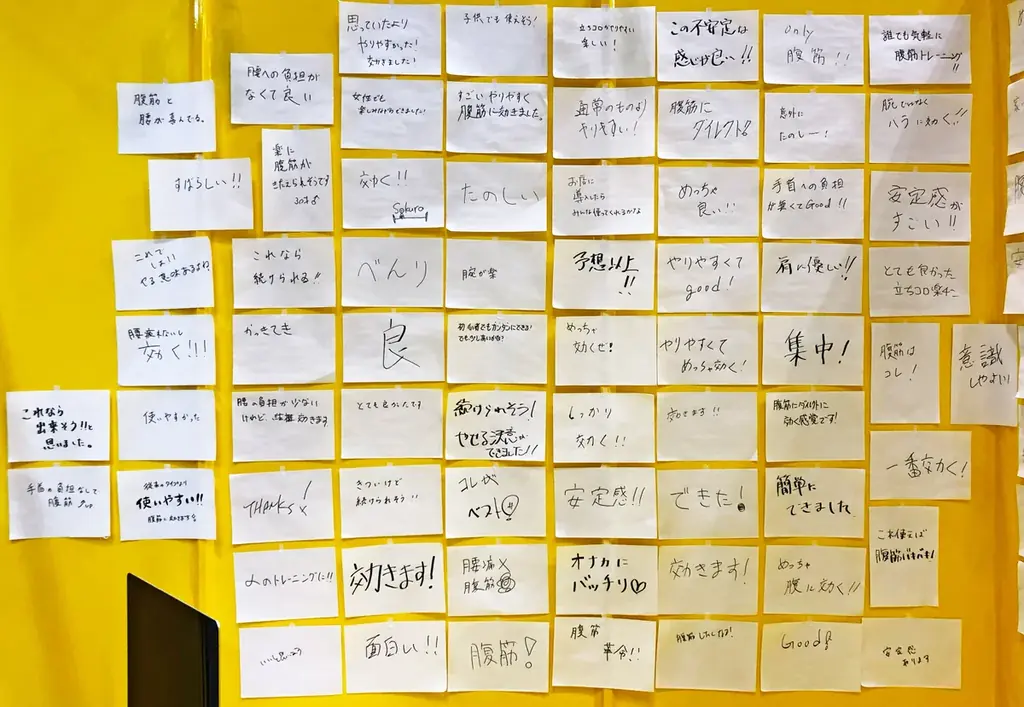 思っていたより
やりやすかった!
効きました!
子供でも使えそう!
立ちコロがやりやすい
楽しい!
この不安定な
感じが良い!!
only
腹筋!!
誰でも気軽に
腹筋トレーニング!!
腹筋と
腰が喜んでる。
腰への負担が
なくて良い
女性でも
すごいやりやすく
腹筋に効きました。
通常のものより
やりやすい!
腹筋に
ダイレクト!
意外に
たのしー!
ハラに効く!!
すばらしい!!
楽に
腹筋が
きたえられそうです
効く!!
Sakuro
たのしい
お店に
導入したら
みんな使ってくれるかな
めっちゃ
良い!!
手首への負担
が無くてGood!!
安定感が
すごい!!
これなら
続けられる!!
べんり
腕が楽
予想以上
!!
やりやすくて
good!
肩に優しい!!
とても良かった
立ちコロ楽々
効く!!!
かっきてき
良
初心者でもカンタンにできる!
めっちゃ
効くぜ!
やりやすくて
めっちゃ効く!
集中!
腹筋は
コレ!
意識
しやすい
これなら
出来そう!!と
思いました。
使いやすかった
腰の負担が少ない
けれど、
効きます
とても良かったです
続けられそう!
やせる決意が
できました!!
しっかり
効く!!
効きます!!
腹筋にダイレクトに
効く感覚です!
一番効く!
手首の負担なしで
腹筋
up
使いやすい!!
THANKS!
きついけど
続けられそう!!
コレが
ベスト!
安定感!!
できた!
簡単に
できました
これ使えば
腹筋バキバキ!
人のトレーニングに!!
効きます!
腰痛×
腹筋◎
オナカに
バッチリ♡
効きます!
めっちゃ
腹に効く!!
面白い!!
腹筋!
腹筋
革命!!
Good!
安定感
あります